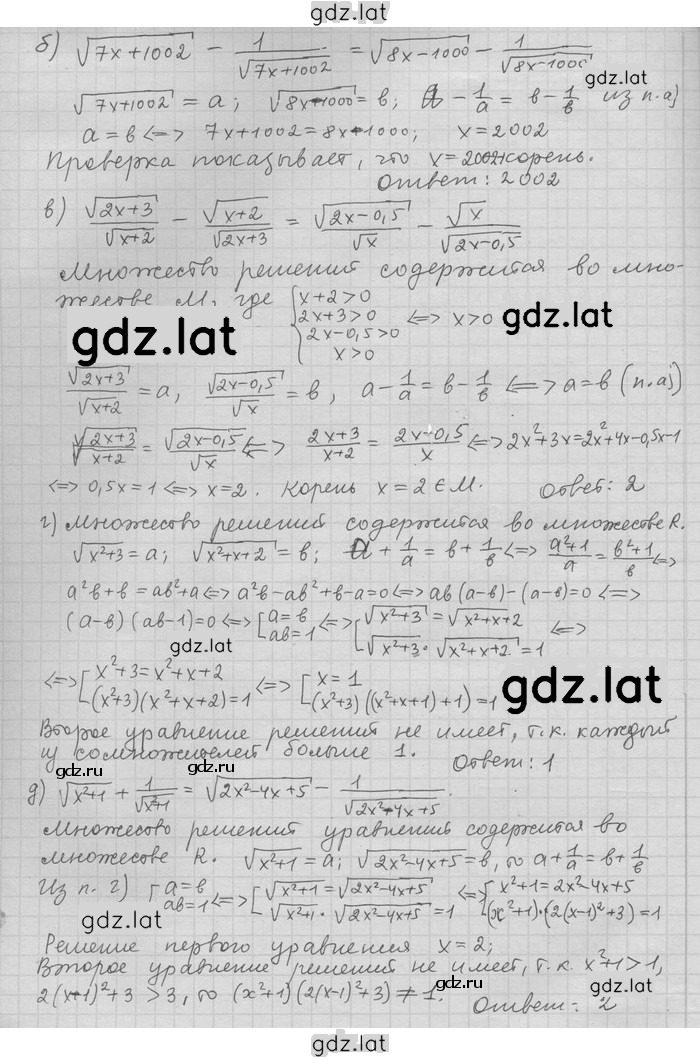 gdz.lat
б) √(7x+1002) − 1/√(7x+1002) = √(8x−1000) − 1/√(8x−1000)
gdz.lat
√(7x+1002) = a; √(8x−1000) = в; a − 1/a = в − 1/в из п.а)
a = в <=> 7x+1002 = 8x−1000; x = 2002
Проверка показывает, что x = 2002 корень.
Ответ: 2002
в) √(2x+3)/√(x+2) − √(x+2)/√(2x+3) = √(2x−0,5)/√x − √x/√(2x−0,5)
Множество решений содержится во мно-
жестве M, где { x+2>0
2x+3>0
2x−0,5>0
x>0 <=> x>0
gdz.lat
gdz.lat
√(2x+3)/√(x+2) = a, √(2x−0,5)/√x = в, a − 1/a = в − 1/в <=> a = в (п.а)
√((2x+3)/(x+2)) = √(2x−0,5)/√x <=> (2x+3)/(x+2) = (2x−0,5)/x <=> 2x²+3x = 2x²+4x−0,5x−1
<=> 0,5x = 1 <=> x = 2. Корень x = 2 ∈ M. Ответ: 2
г) Множество решений содержится во множестве R.
√(x²+3) = a; √(x²+x+2) = в; a + 1/a = в + 1/в <=> (a²+1)/a = (в²+1)/в <=>
a²в+в = aв²+a <=> a²в−aв²+в−a=0 <=> aв(a−в)−(a−в)=0 <=>
(a−в)(aв−1)=0 <=> [ a=в
aв=1 <=> [ √(x²+3) = √(x²+x+2)
√(x²+3) · √(x²+x+2) = 1 <=>
gdz.lat
<=> [ x²+3 = x²+x+2
(x²+3)(x²+x+2) = 1 <=> [ x = 1
(x²+3)((x²+x+1)+1) = 1
gdz.lat
Второе уравнение решений не имеет, т.к. каждый
из сомножителей больше 1. Ответ: 1
gdz.ru
gdz.ru
д) √(x²+1) + 1/√(x²+1) = √(2x²−4x+5) − 1/√(2x²−4x+5).
Множество решений уравнения содержится во
множестве R. √(x²+1) = a; √(2x²−4x+5) = в, то a + 1/a = в + 1/в
Из п. г) [ a=в
aв=1 <=> [ √(x²+1) = √(2x²−4x+5)
√(x²+1) · √(2x²−4x+5) = 1 <=> [ x²+1 = 2x²−4x+5
(x²+1)·(2(x−1)²+3) = 1
gdz.lat
Решение первого уравнения x = 2;
Второе уравнение решений не имеет, т.к. x²+1 > 1,
2(x−1)²+3 > 3, то (x²+1)(2(x−1)²+3) ≠ 1.
Ответ: 2
gdz.ru
gdz.ru
gdz.lat